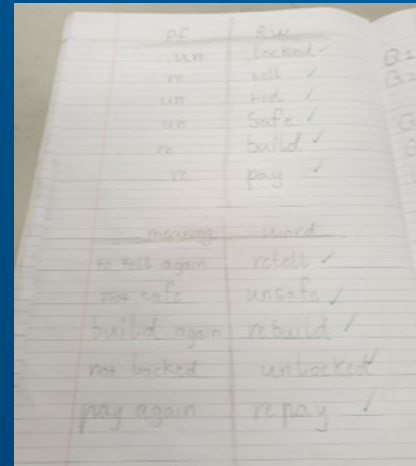 pf rw
un locked
re tell ✓
un tied ✓
un safe ✓
re build ✓
re pay ✓
meaning word
to tell again retell ✓
not safe unsafe ✓
build again rebuild ✓
not locked unlocked ✓
pay again repay ✓